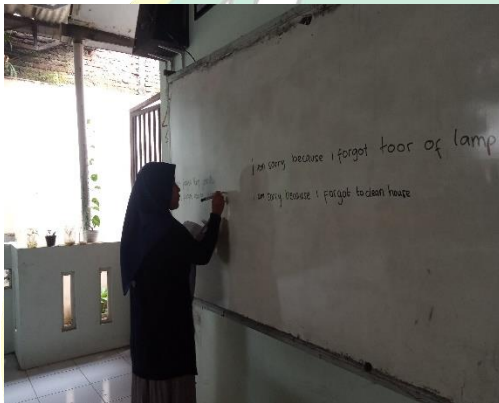 i am sorry because i forgot toor of lamp
i am sorry because i forgot to clean house